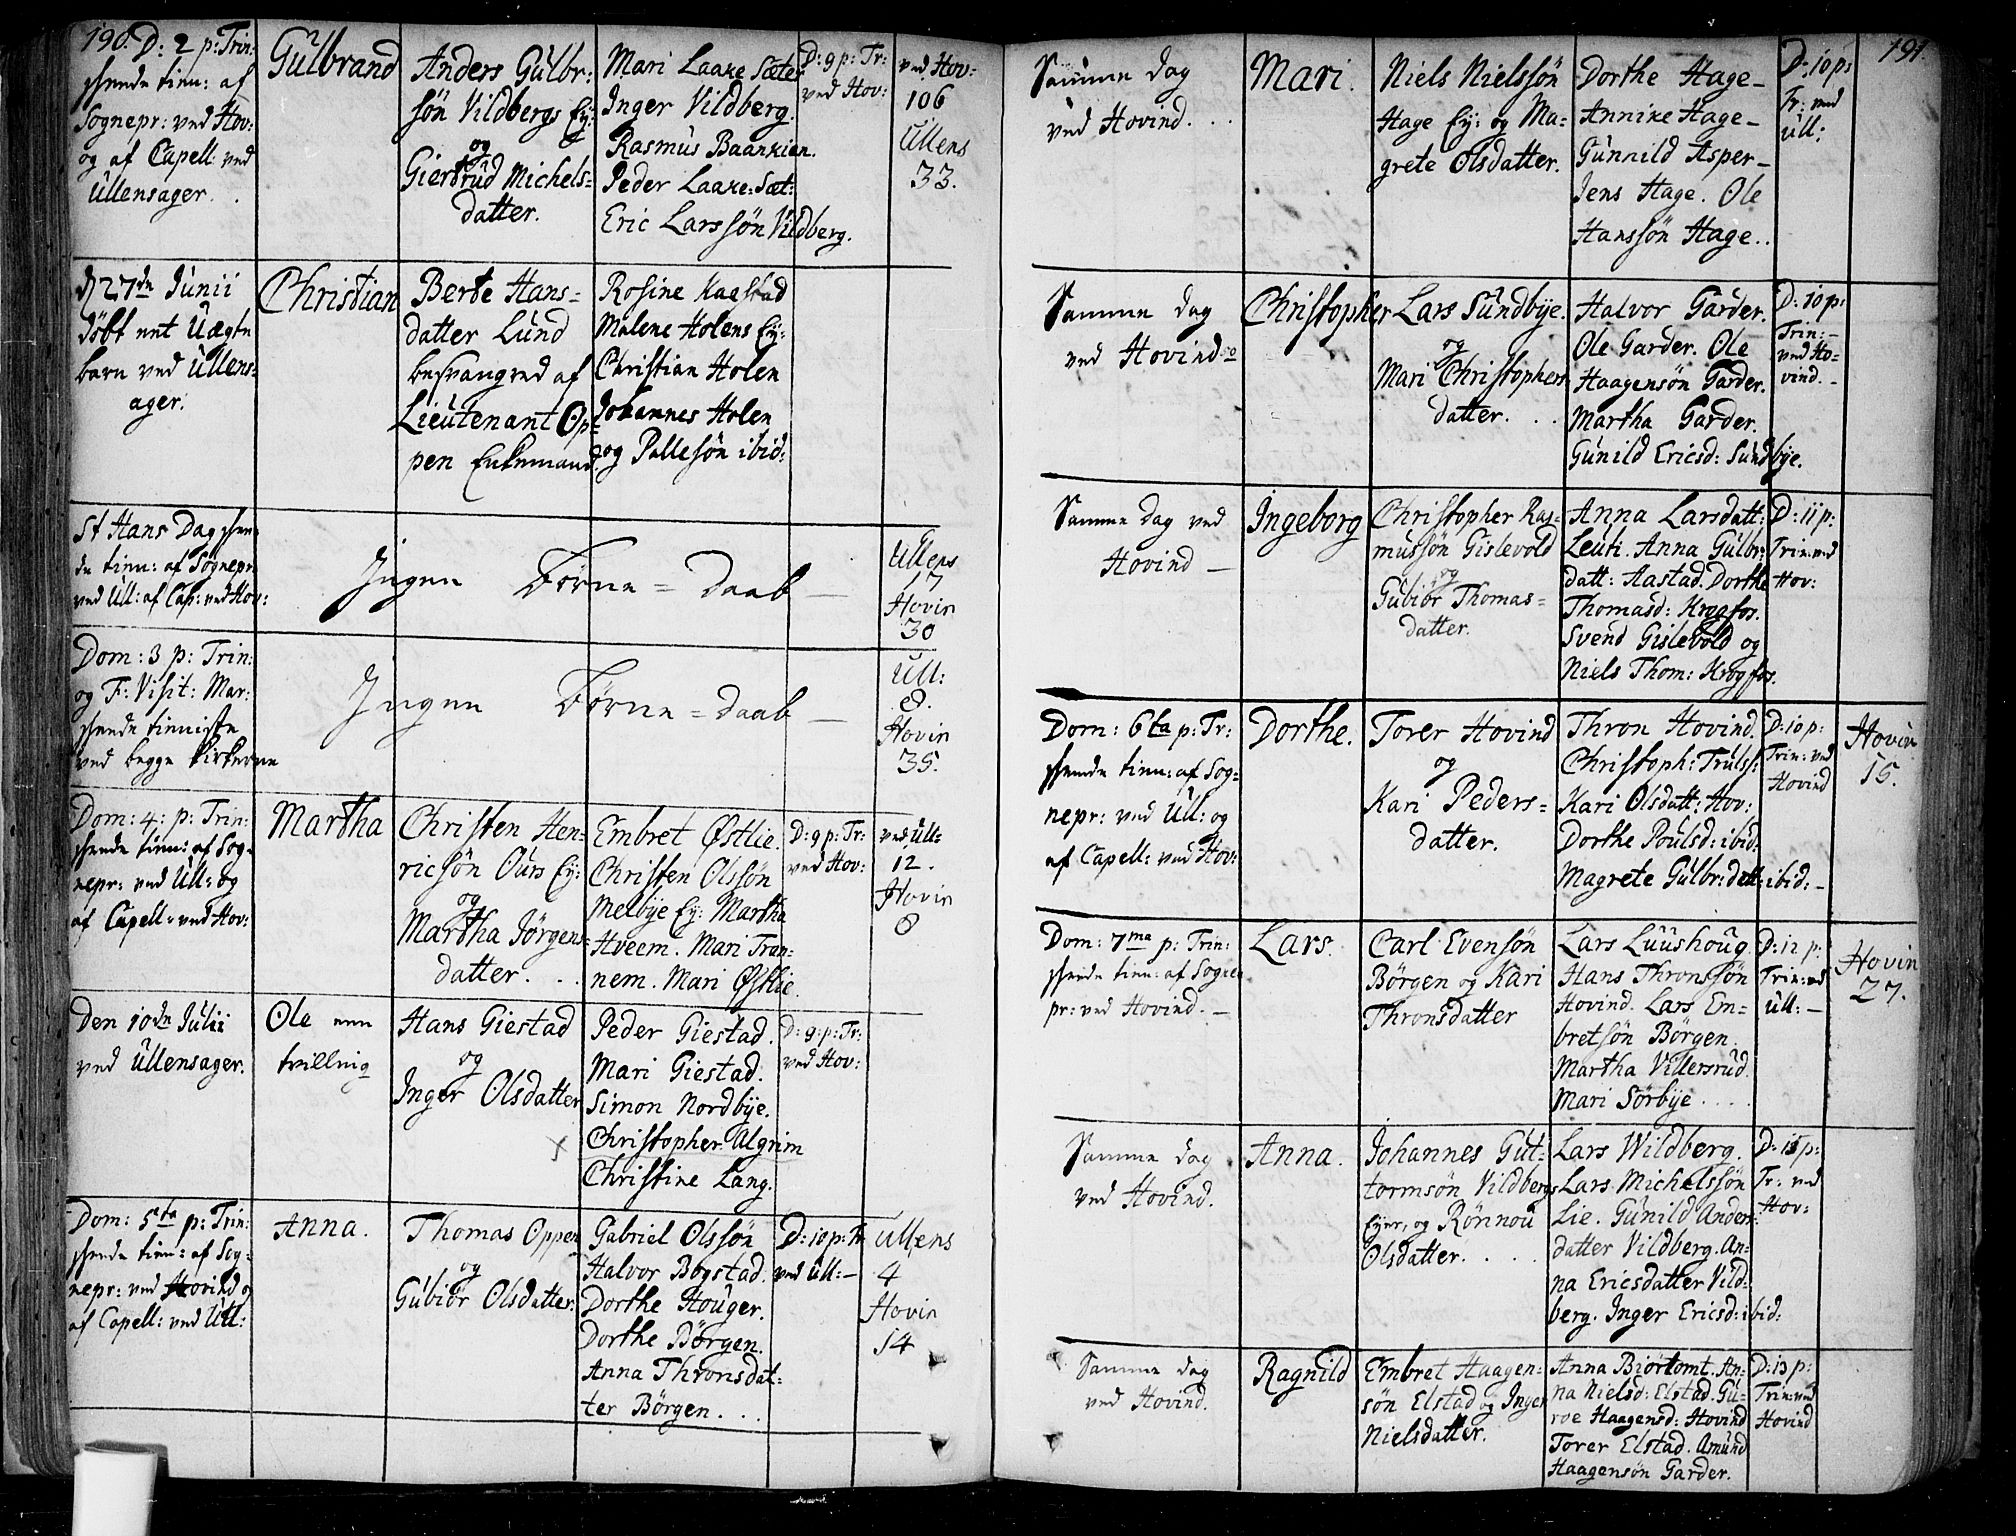 190.
D: 2 p: Trin:
skeede tien: af
Sognepr: ved Hov:
og af Capell: ved
Ullensager.
Gulbrand
Anders Gulbr:
søn Vildbergs Ey:
og
Giertrud Michels=
datter.
Mari Laake Sæter
Inger Vildberg.
Rasmus Baankien.
Peder Laake=Sæt:
Eric Larssøn Vildberg.
D: 9 p: Tr:
ved Hov:
ved Hov:
106
Ullens
33.
d 27de Junii
døbt et Uægte
barn ved Ullens=
ager.
Christian
Berte Hans=
datter Lund
besvangred af
Lieutenant Op=
pen Enkemand.
Rosine Kagstad
Malene Holens Ey:
Christian Holen
Johannes Holen
og Pallesøn ibid:
St Hans Dag skee=
de tien: af Sognepr:
ved Ull: af Cap: ved Hov:
Ingen Børne=daab
Ullens
17
Hovin
30
Dom: 3 p: Trin:
og F: Visit: Mar:
skeede tienniste
ved begge Kirkerne
Ingen Børne=daab
Ull:
8.
Hovin
35.
Dom: 4: p: Trin:
skeede tien: af Sog=
nepr: ved Ull: og
af Capell: ved Hov:
Martha
Christen Hen=
ricsøn Ours Ey:
og
Martha Jørgens=
datter.
Embret Østlie.
Christen Olssøn
Melbye Ey: Martha
Hveem. Mari Tran=
nem. Mari Østlie.
D: 9 p: Tr:
ved Hov:
ved Ull:
12.
Hovin
8
Den 10de Julii
ved Ullensager.
Ole een
tvilling
Hans Giestad
og
Inger Olsdatter
Peder Giestad.
Mari Giestad.
Simon Nordbye.
Christopher Algrim
Christine Lang.
D: 9: p: Tr:
ved Hov:
Dom: 5ta p: Trin:
skeede tien: af Sog=
nepr: ved Hovind og
af Capell: ved Ull:
Anna.
Thomas Oppen
og
Gubiør Olsdatter.
Gabriel Olssøn
Halvor Bogstad.
Dorthe Houger.
Dorthe Børgen.
Anna Thronsdat=
ter Børgen.
D: 10 p: Tr
ved Ull:
Ullens
4
Hovin
14
191.
Samme Dag
ved Hovind.
Mari.
Niels Nielssøn
Hage Ey: og Ma=
grete Olsdatter.
Dorthe Hage
Annike Hage
Gunnild Asper
Jens Hage. Ole
Hanssøn Hage.
D: 10 p:
Tr: ved
Ull:
Samme Dag
ved Hovind
Christopher
Lars Sundbye.
og
Mari Christophers
datter.
Halvor Garder.
Ole Garder. Ole
Haagensøn Garder.
Martha Garder.
Gunild Ericsd: Sundbye.
D: 10 p:
Trin:
ved Ho=
vind.
Samme Dag ved
Hovind
Ingeborg
Christopher Ras=
mussøn Gislevold
og
Gubiør Thomas=
datter.
Anna Larsdatt:
Leuti. Anna Gulbr:
datt: Aastad. Dorthe
Thomasd: Krogfos.
Svend Gislevold og
Niels Thom: Krogfos.
D: 11 p:
Trin: ved
Hov:
Dom: 6ta p: Tr:
skeede tien: af Sog=
nepr: ved Ull: og
af Capell: ved Hov:
Dorthe.
Torer Hovind
og
Kari Peders=
datter.
Thron Hovind.
Christoph: Trulss:
Kari Olsdatt: Hov:
Dorthe Poulsd: ibid:
Magrete Gulbr: datt: ibid:
D: 10 p:
Trin: ved
Hovind
Hovin
15.
Dom: 7ma p: Trin:
skeede tien: af Sogne
pr: ved Hovind.
Lars.
Carl Evensøn
Børgen og Kari
Thronsdatter
Lars Luushoug.
Hans Thronssøn
Hovind. Lars Em=
bretsøn Børgen.
Martha Villersrud.
Mari Sørbye.
D: 12 p:
Trin: ved
Ull:
Hovin
27.
Samme Dag
ved Hovind.
Anna.
Johannes Gut=
tormsøn Vildbergs
Eyer, og Rønnou
Olsdatter.
Lars Wildberg.
Lars Michelssøn
Lie. Gunild Anders
datter Vildberg. An=
na Ericsdatter Vild=
berg. Inger Ericsd: ibid:
D: 15 p:
Tr: ved
Hov:
Samme Dag
ved Hovind.
Ragnild
Embret Haagen=
søn Elstad og Inger
Nielsdatter.
Anna Biørtomt. An=
na Nielsd: Elstad. Gu=
roe Haagensd: Hovind
Torer Elstad. Amund
Haagensøn Garder.
D: 13 p:
Trin: ved
Hovind